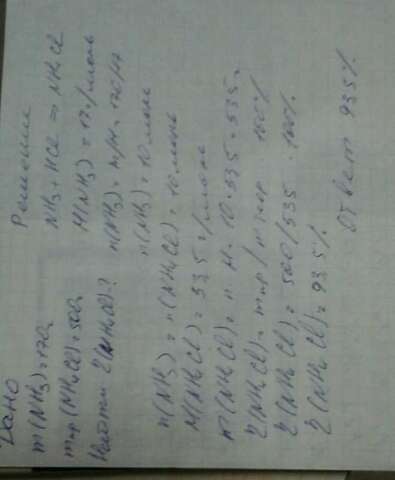 Дано
m(NH3)=170г
mпр(NH4Cl)=500г
Найти η(NH4Cl)-?
Решение
NH3+HCl=>NH4Cl
M(NH3)=17г/моль
n(NH3)=m/M=170/17
n(NH3)=10моль
n(NH3)=n(NH4Cl)=10моль
M(NH4Cl)=53.5г/моль
m(NH4Cl)=n·M=10·53.5=535г
η(NH4Cl)=mпр/mтеор·100%
η(NH4Cl)=500/535·100%
η(NH4Cl)=93.5%
Ответ 93.5%